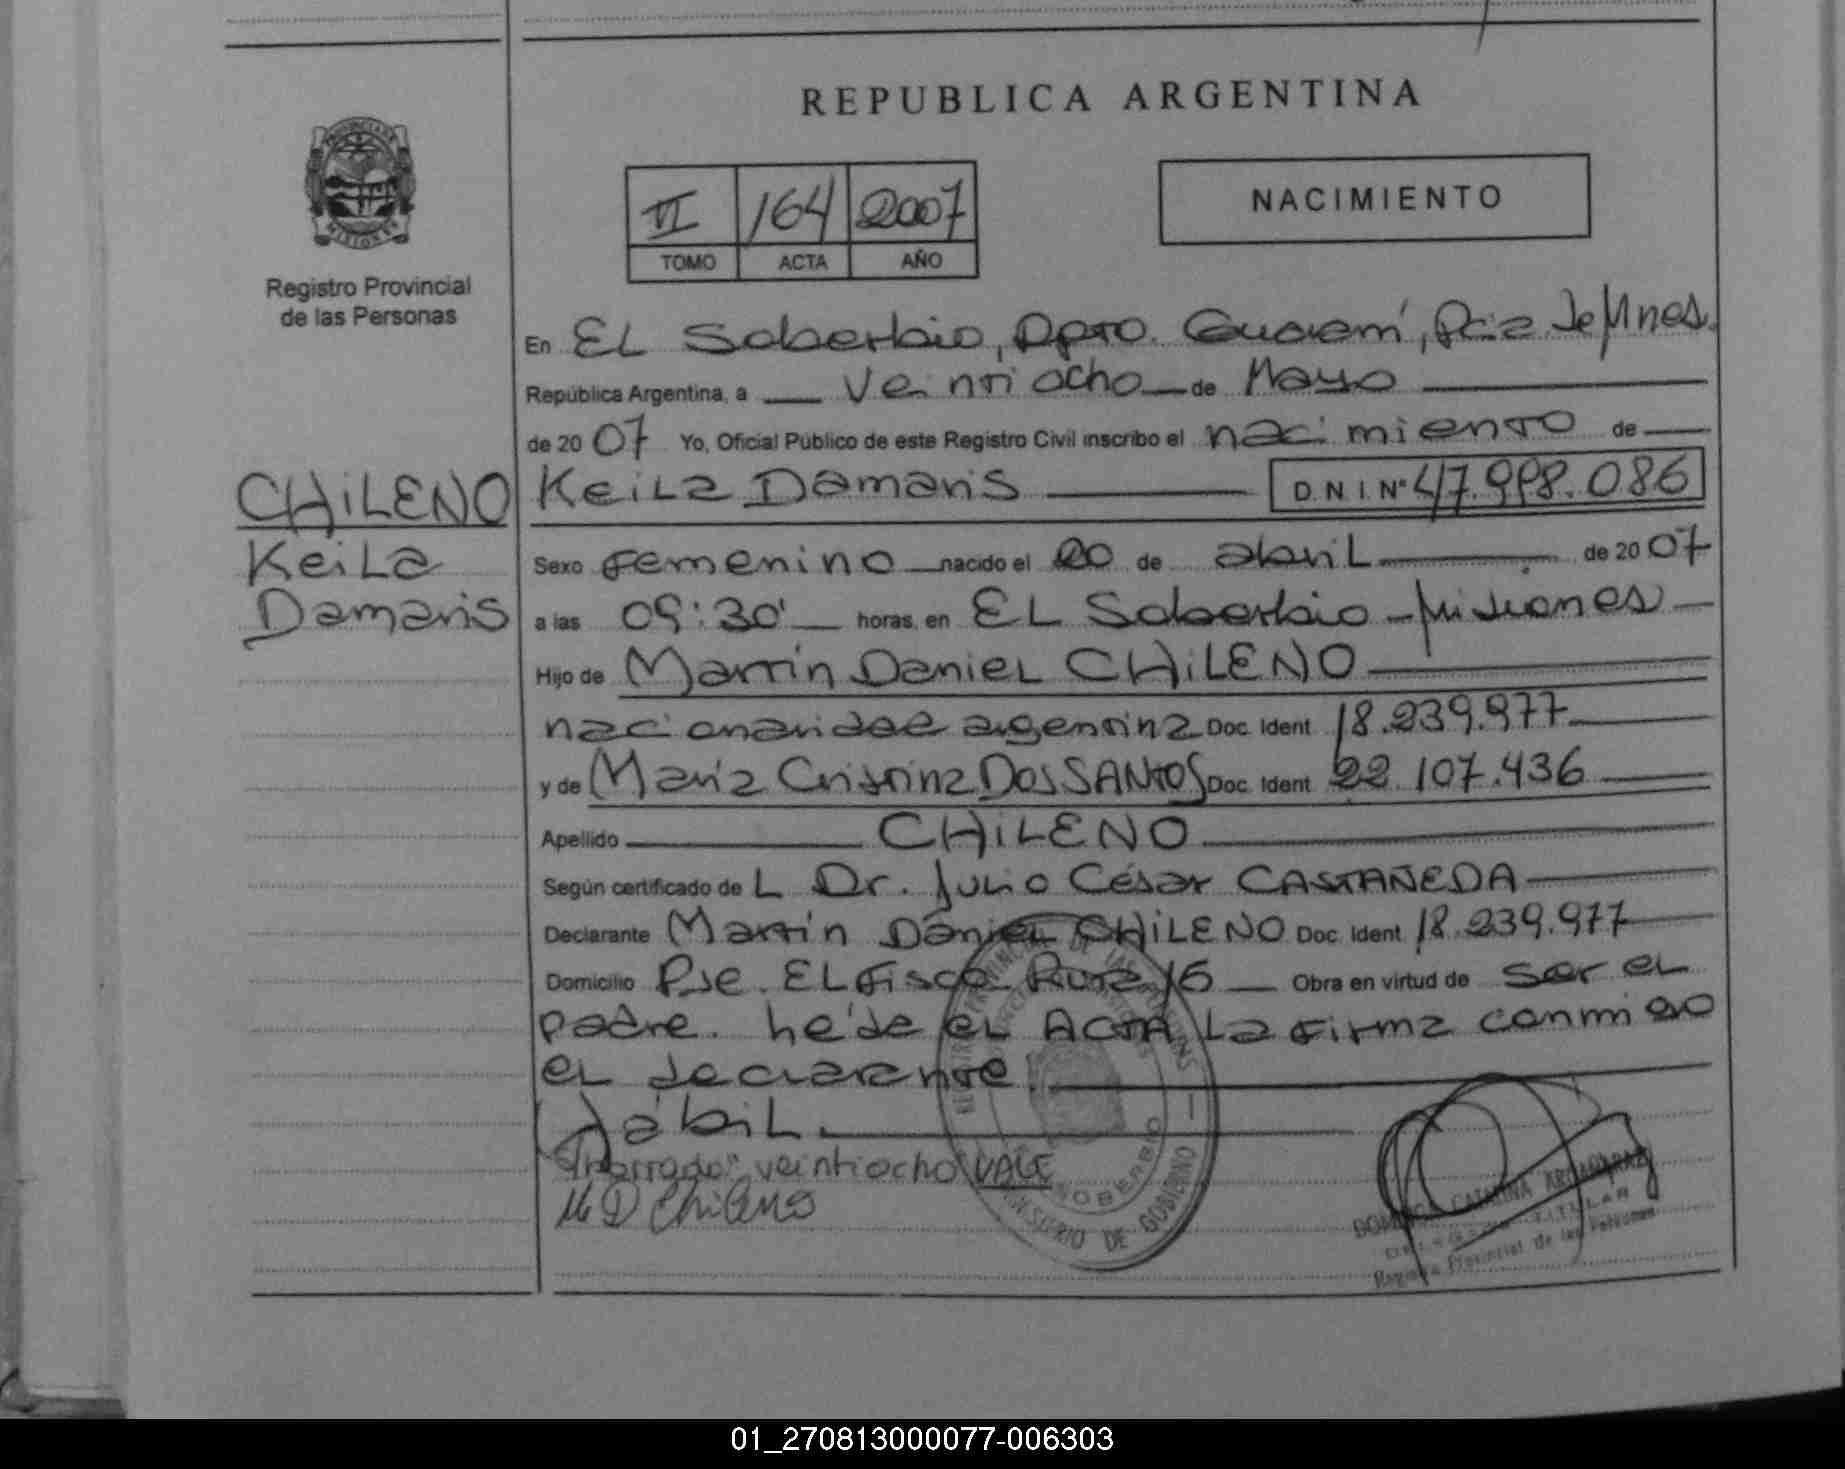 REPUBLICA ARGENTINA
VI 164 2007
TOMO ACTA AÑO
NACIMIENTO
PROVINCIA DE
MISIONES
Registro Provincial
de las Personas
CHILENO
Keila
Damaris
En El Soberbio, Dpto. Guaraní, Pcia. de Mnes.
República Argentina, a veintiocho de Mayo
de 2007 Yo, Oficial Público de este Registro Civil inscribo el nacimiento de
Keila Damaris D.N.I. Nº 47.998.086
Sexo femenino nacido el 20 de abril de 2007
a las 09:30' horas, en El Soberbio - Misiones
Hijo de Martín Daniel CHILENO
nacionalidad argentina Doc. Ident. 18.239.977
y de María Cristina Dos SANTOS Doc. Ident. 22.107.436
Apellido CHILENO
Según certificado del Dr. Julio César CASTAÑEDA
Declarante Martín Daniel CHILENO Doc. Ident. 18.239.977
Domicilio Pje. El Fisco Ruta 16 Obra en virtud de ser el
padre. leída el ACTA la firma conmigo
el declarante.
"abril
veintiocho" VALE
M D Chileno
SOBERBIO
MINISTERIO DE GOBIERNO
CATALINA
TITULAR
Registro Provincial de las Personas
01_270813000077-006303